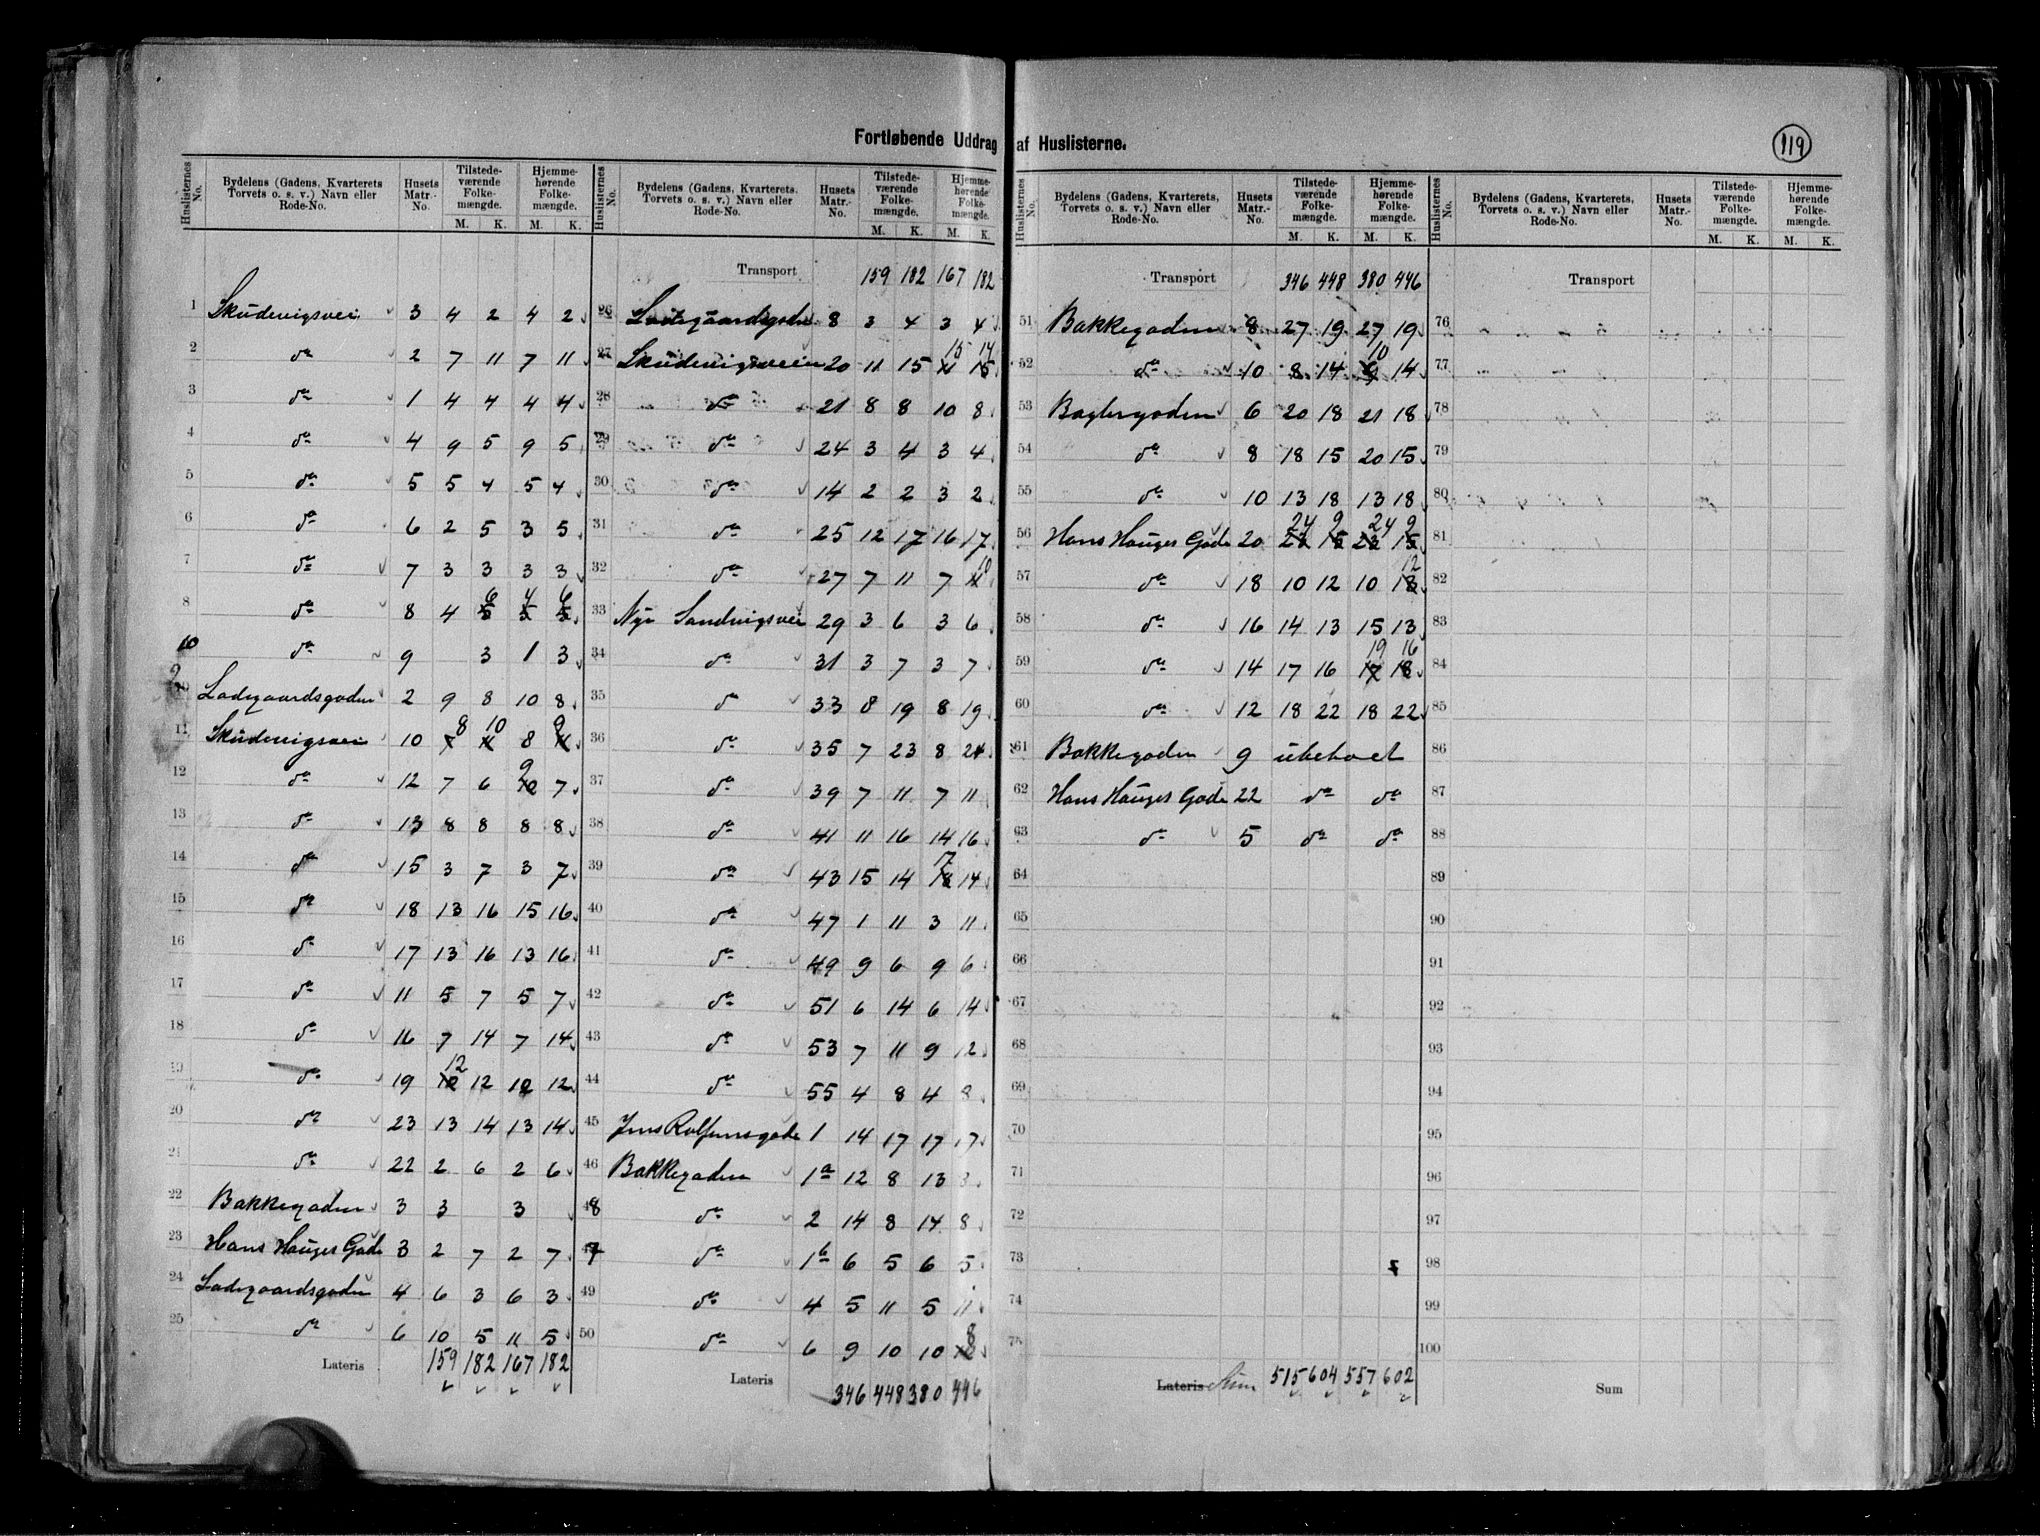 Fortløbende Uddrag af Huslisterne.
119
Huslisternes No. | Bydelens (Gadens, Kvarterets Torvets o. s. v.) Navn eller Rode-No. | Husets Matr.-No. | Tilstedeværende Folkemængde. M. K. | Hjemmehørende Folkemængde. M. K.
1 Skudevigsvei 3 4 2 4 2
2 do 2 7 11 7 11
3 do 1 4 4 4 4
4 do 4 9 5 9 5
5 do 5 5 4 5 4
6 do 6 2 5 3 5
7 do 7 3 3 3 3
8 do 8 4 6 4 6
10 do 9 3 1 3
9 Ladegaardsgaden 2 9 8 10 8
11 Skudevigsvei 10 8 10 8 9
12 do 12 7 6 9 7
13 do 13 8 8 8 8
14 do 15 3 7 3 7
15 do 18 13 16 15 16
16 do 17 13 16 13 16
17 do 11 5 7 5 7
18 do 16 7 14 7 14
19 do 19 12 12 12 12
20 do 23 13 14 13 14
21 do 22 2 6 2 6
22 Bakkegaden 3 3 3
23 Hans Hauges Gade 3 2 7 2 7
24 Ladegaardsgaden 4 6 3 6 3
25 do 6 10 5 11 5
Lateris 159 182 167 182
Huslisternes No. | Bydelens (Gadens, Kvarterets, Torvets o. s. v.) Navn eller Rode-No. | Husets Matr.-No. | Tilstedeværende Folkemængde. M. K. | Hjemmehørende Folkemængde. M. K.
Transport 159 182 167 182
26 Ladegaardsgaden 8 3 4 3 4
27 Skudevigsveien 20 11 15 15 14
28 do 21 8 8 10 8
29 do 24 3 4 3 4
30 do 14 2 2 3 2
31 do 25 12 17 16 17
32 do 27 7 11 7 10
33 Nye Sandvigsvei 29 3 6 3 6
34 do 31 3 7 3 7
35 do 33 8 19 8 19
36 do 35 7 23 8 24
37 do 39 7 11 7 11
38 do 41 11 16 14 16
39 do 43 15 14 17 14
40 do 47 1 11 3 11
41 do 49 9 6 9 6
42 do 51 6 14 6 14
43 do 53 7 11 9 12
44 do 55 4 8 4 8
45 Jens Rolfsensgade 1 14 17 17 17
46 Bakkegaden 1a 12 8 13 8
48 do 2 14 8 14 8
47 do 1b 6 5 6 5
49 do 4 5 11 5 11
50 do 6 9 10 10 8
Lateris 346 448 380 446
Huslisternes No. | Bydelens (Gadens, Kvarterets, Torvets o. s. v.) Navn eller Rode-No. | Husets Matr.-No. | Tilstedeværende Folkemængde. M. K. | Hjemmehørende Folkemængde. M. K.
Transport 346 448 380 446
51 Bakkegaden 8 27 19 27 19
52 do 10 8 14 10 14
53 Baglergaden 6 20 18 21 18
54 do 8 18 15 20 15
55 do 10 13 18 13 18
56 Hans Hauges Gade 20 24 9 24 9
57 do 18 10 12 10 12
58 do 16 14 13 15 13
59 do 14 17 16 19 16
60 do 12 18 22 18 22
61 Bakkegaden 9 ubeboet
62 Hans Hauges Gade 22 do do
63 do 5 do do
64
65
66
67
68
69
70
71
72
73
74
75
Lateris Sum 515 604 557 602
Huslisternes No. | Bydelens (Gadens, Kvarterets, Torvets o. s. v.) Navn eller Rode-No. | Husets Matr.-No. | Tilstedeværende Folkemængde. M. K. | Hjemmehørende Folkemængde. M. K.
Transport
76
77
78
79
80
81
82
83
84
85
86
87
88
89
90
91
92
93
94
95
96
97
98
99
100
Sum